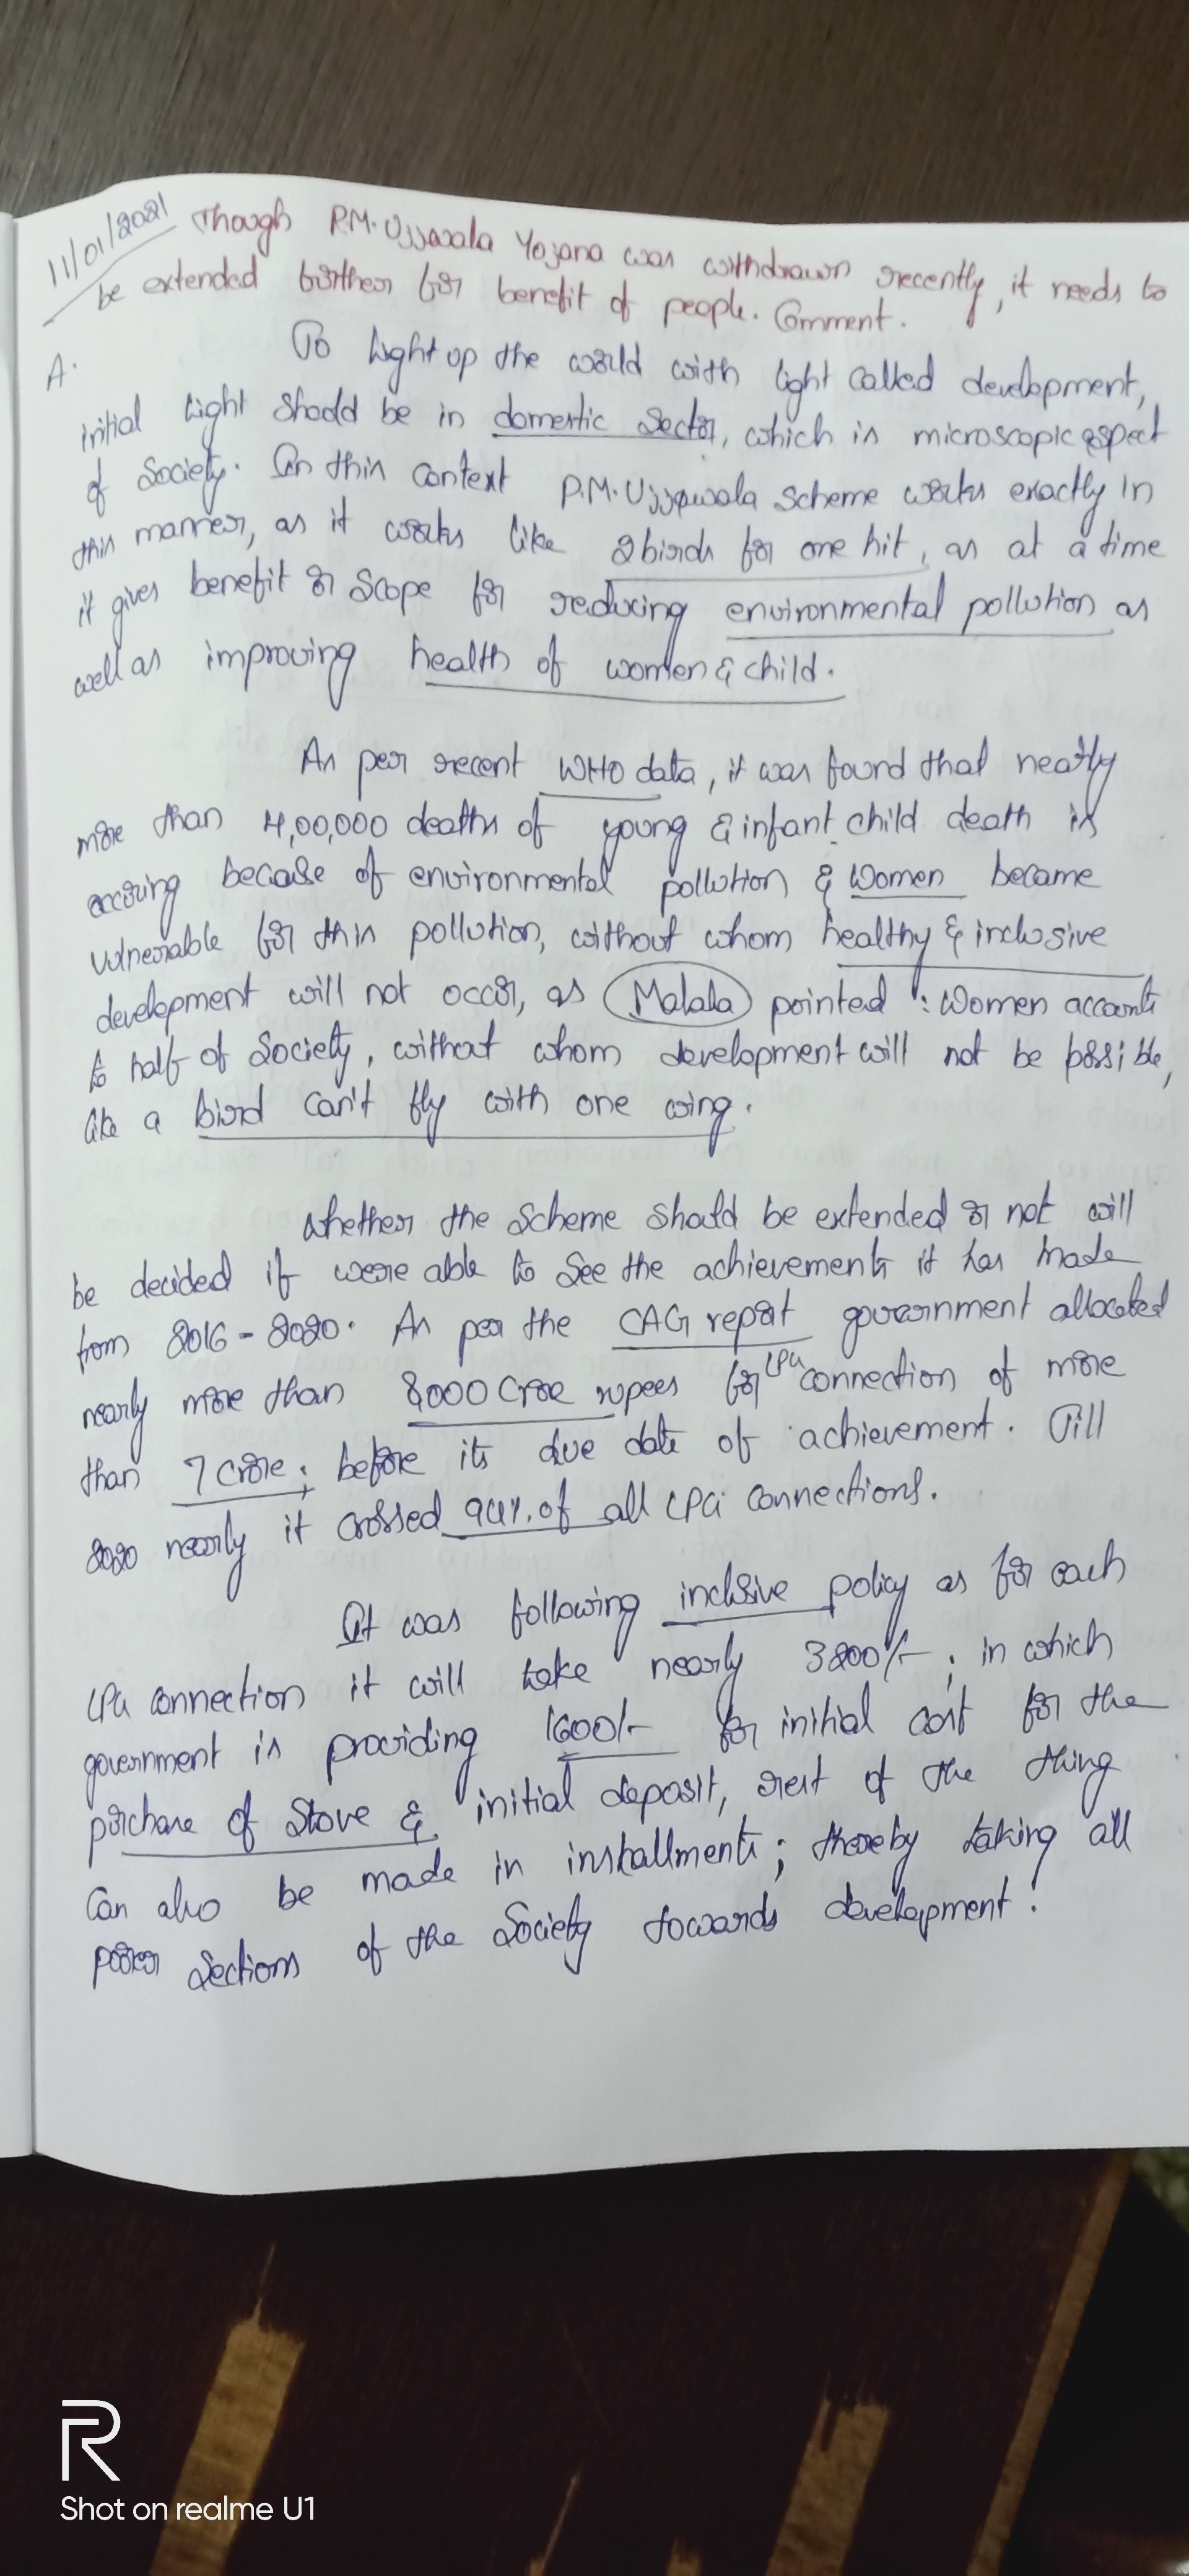 11/01/2021 Though P.M. Ujjawala Yojana was withdrawn recently, it needs to
be extended further for benefit of people. Comment.
A. To light up the world with light called development,
initial light should be in domestic sector, which is microscopic aspect
of society. In this context P.M. Ujjawala scheme works exactly in
this manner, as it works like 2 birds for one hit, as at a time
it gives benefit or scope for reducing environmental pollution as
well as improving health of women & child.
As per recent WHO data, it was found that nearly
more than 4,00,000 deaths of young & infant child death is
occuring because of environmental pollution & women became
vulnerable for this pollution, without whom healthy & inclusive
development will not occur, as Malala pointed : Women accounts
to half of society, without whom development will not be possible,
like a bird can't fly with one wing.
Whether the scheme should be extended or not will
be decided if were able to see the achievements it has made
from 2016 - 2020. As per the CAG report government allocated
nearly more than 8000 crore rupees for LPG connection of more
than 7 crore; before its due date of achievement. Till
2020 nearly it crossed 94% of all LPG connections.
It was following inclusive policy as for each
LPG connection it will take nearly 3200/-; in which
government is providing 1600/- for initial cost for the
purchase of stove & initial deposit, rest of the thing
can also be made in installments; thereby taking all
poorer sections of the society towards development.
R
Shot on realme U1